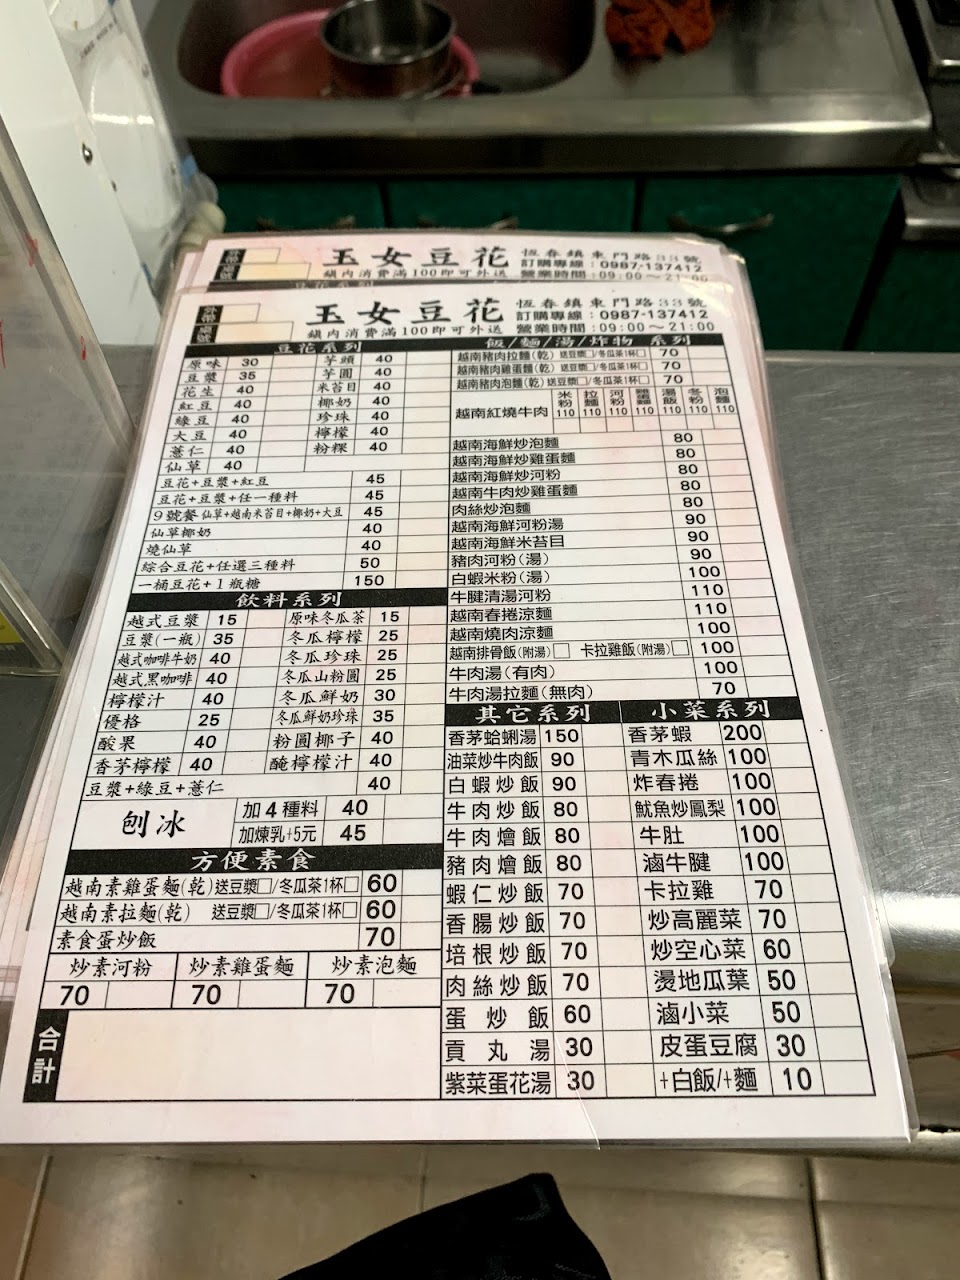 外帶
桌號
玉女豆花
恆春鎮東門路33號
訂購專線：0987-137412
鎮內消費滿100即可外送
營業時間：09:00～21:00
外帶
桌號
玉女豆花
恆春鎮東門路33號
訂購專線：0987-137412
鎮內消費滿100即可外送
營業時間：09:00～21:00
豆花系列
原味 30 芋頭 40
豆漿 35 芋圓 40
花生 40 米苔目 40
紅豆 40 椰奶 40
綠豆 40 珍珠 40
大豆 40 檸檬 40
薏仁 40 粉粿 40
仙草 40
豆花+豆漿+紅豆 45
豆花+豆漿+任一種料 45
9號餐 仙草+越南米苔目+椰奶+大豆 45
仙草椰奶 40
燒仙草 40
綜合豆花+任選三種料 50
一桶豆花+1瓶糖 150
飲料系列
越式豆漿 15 原味冬瓜茶 15
豆漿(一瓶) 35 冬瓜檸檬 25
越式咖啡牛奶 40 冬瓜珍珠 25
越式黑咖啡 40 冬瓜山粉圓 25
檸檬汁 40 冬瓜鮮奶 30
優格 25 冬瓜鮮奶珍珠 35
酸果 40 粉圓椰子 40
香茅檸檬 40 醃檸檬汁 40
豆漿+綠豆+薏仁 40
刨冰
加4種料 40
加煉乳+5元 45
方便素食
越南素雞蛋麵(乾) 送豆漿□/冬瓜茶1杯□ 60
越南素拉麵(乾) 送豆漿□/冬瓜茶1杯□ 60
素食蛋炒飯 70
炒素河粉 炒素雞蛋麵 炒素泡麵
70 70 70
合計
飯/麵/湯/炸物 系列
越南豬肉拉麵(乾) 送豆漿□/冬瓜茶1杯□ 70
越南豬肉雞蛋麵(乾) 送豆漿□/冬瓜茶1杯□ 70
越南豬肉泡麵(乾) 送豆漿□/冬瓜茶1杯□ 70
越南紅燒牛肉 米粉 拉麵 河粉 雞蛋麵 湯飯 冬粉 泡麵
110 110 110 110 110 110 110
越南海鮮炒泡麵 80
越南海鮮炒雞蛋麵 80
越南海鮮炒河粉 80
越南牛肉炒雞蛋麵 80
肉絲炒泡麵 80
越南海鮮河粉湯 90
越南海鮮米苔目 90
豬肉河粉(湯) 90
白蝦米粉(湯) 100
牛腱清湯河粉 110
越南春捲涼麵 110
越南燒肉涼麵 100
越南排骨飯(附湯)□ 卡拉雞飯(附湯)□ 100
牛肉湯(有肉) 100
牛肉湯拉麵(無肉) 70
其它系列
香茅蛤蜊湯 150
油菜炒牛肉飯 90
白蝦炒飯 90
牛肉炒飯 80
牛肉燴飯 80
豬肉燴飯 80
蝦仁炒飯 70
香腸炒飯 70
培根炒飯 70
肉絲炒飯 70
蛋炒飯 60
貢丸湯 30
紫菜蛋花湯 30
小菜系列
香茅蝦 200
青木瓜絲 100
炸春捲 100
魷魚炒鳳梨 100
牛肚 100
滷牛腱 100
卡拉雞 70
炒高麗菜 70
炒空心菜 60
燙地瓜葉 50
滷小菜 50
皮蛋豆腐 30
+白飯/+麵 10